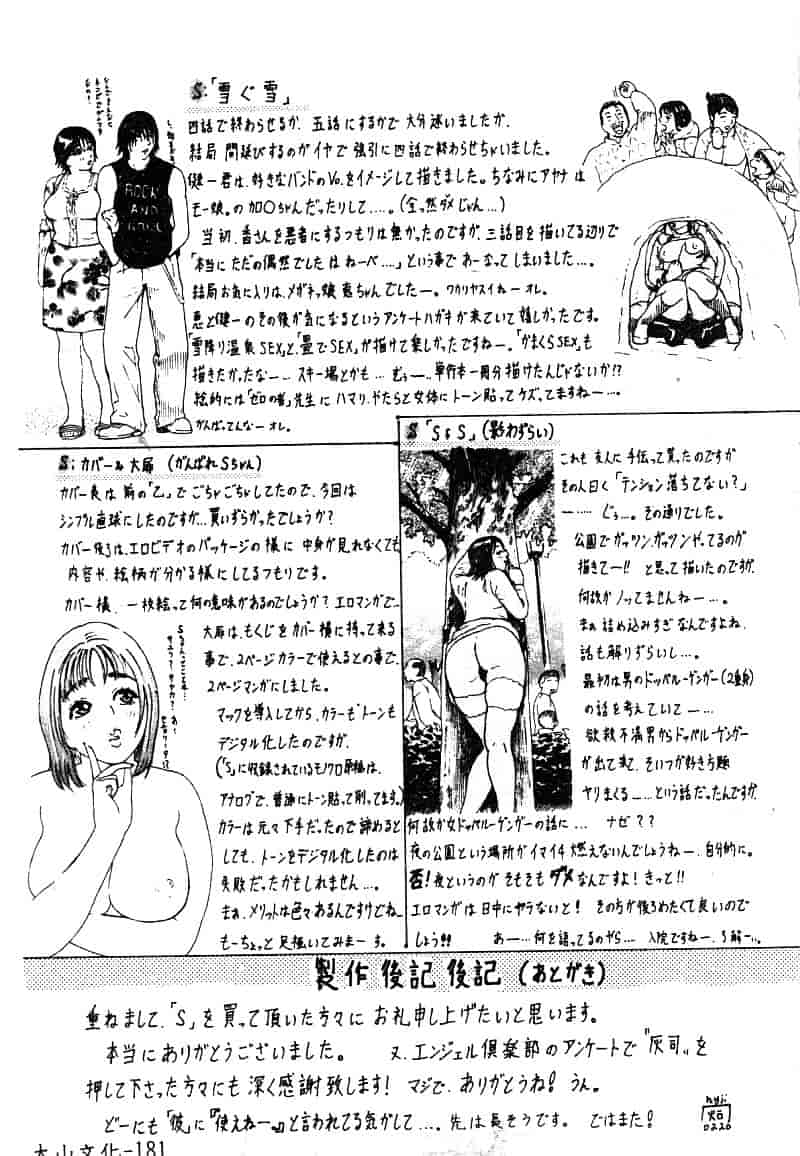 S:「雪ぐ雪」
四話で終わらせるか、五話にするかで大分迷いましたが、
結局間延びするのがイヤで強引に四話で終わらせちゃいました。
健一君は、好きなバンドのVo.をイメージして描きました。ちなみにアヤナは
モー娘。の加〇ちゃんだったりして……。(全っ然ダメじゃん…)
当初、香さんを悪者にするつもりは無かったのですが、三話目を描いてる辺りで
「本当にただの偶然でした はねーべ……」という事で あーなってしまいました…。
結局お気に入りは、メガネっ娘 恵ちゃんでしたー。ワカリヤスイねー オレ。
恵と健一のその後が気になるというアンケートハガキが来ていて嬉しかったです。
「雪降り温泉SEX」と「畳でSEX」が描けて楽しかったですねー。「かまくらSEX」も
描きたかったなー… スキー場とかも… むぅー…単行本一冊分描けたんじゃないか!?
絵的には「ゼロの者」先生にハマリ、やたらと女体にトーン貼ってケズってますねー…。
がんばってんなー オレ。
ROCK
AND
ROLL
S:カバー&大扉 (がんばれSちゃん)
カバー表は前の「乙」でごちゃごちゃしてたので、今回は
シンプル直球にしたのですが…買いずらかったでしょうか?
カバー後ろは、エロビデオのパッケージの様に中身が見れなくても
内容や、絵柄が分かる様にしてるつもりです。
カバー横、一枚絵って何の意味があるのでしょうか?エロマンガで…
大扉は、もくじをカバー横に持って来る
事で、2ページカラーで使えるとの事で、
2ページマンガにしました。
マックを導入してから、カラーもトーンも
デジタル化したのですが、
(「S」に収録されているモノクロ原稿は、
アナログで、普通にトーン貼って削ってます。)
カラーは元々下手だったので諦めると
しても、トーンをデジタル化したのは
失敗だったかもしれません…。
まぁ、メリットは色々あるんですけどねー
もーちょっと足掻いてみまーす。
S「S&S」(影わずらい)
これも友人に手伝って貰ったのですが
その人曰く「テンション落ちてない?」
……じぅ…。その通りでした。
公園でガッツン、ガッツンヤってるのが
描きてー!! と思って描いたのですが、
何故かノッてませんねー…。
まぁ詰め込みすぎなんですよね、
話も解りずらいし…。
最初は男のドッペルーゲンガー(2重身)
の話を考えていてー…、
欲求不満男からドッペルーゲンガー
が出て来て、そいつが好き放題
ヤりまくる……という話だったんですが、
何故か女ドッペルーゲンガーの話に… ナゼ??
夜の公園という場所がイマイチ燃えないんでしょうねー、自分的に。
否!夜というのがそもそもダメなんですよ!きっと!!
エロマンガは日中にヤラないと! その方が後ろめたくて良いので
しょう!! あー…何を語ってるのやら… 入院ですねー、了解ー…
製作後記後記(あとがき)
重ねまして、「S」を買って頂いた方々にお礼申し上げたいと思います。
本当にありがとうございました。 又、エンジェル倶楽部のアンケートで"灰司"を
押して下さった方々にも深く感謝致します! マジで、ありがとうね! うん。
どーにも「彼」に『使えねー』と言われてる気がして…。先は長そうです。 ではまた!
0220
181